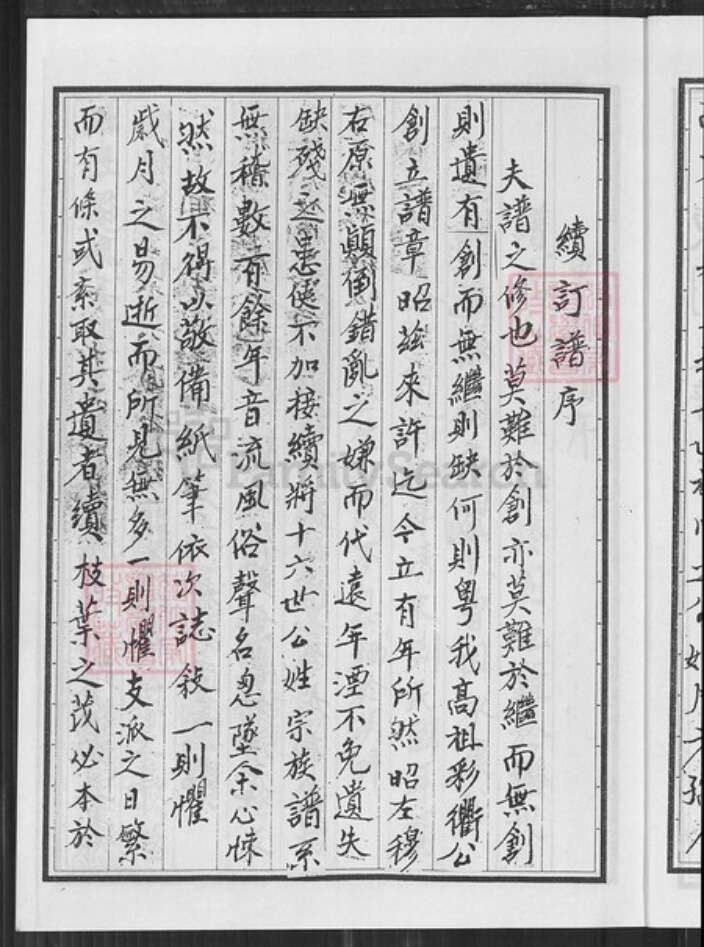 續訂譜序
夫譜之修也莫難於創亦莫難於繼而無創
則遺有創而無繼則缺何則粵我高祖彩衢公
創立譜章昭茲來許迄今立有年所然昭左穆
右原無顛倒錯亂之嫌而代遠年湮不免遺失
缺殘之患使不加接續將十六世公姓宗族譜系
無稽數百餘年音流風俗聲名忽墜余心悚
然故不得以敬備紙筆依次誌敍一則懼
歲月之易逝而所見無多一則懼支派之日繁
而有條或紊取其遺者續枝葉之茂必本於
FamilySearch